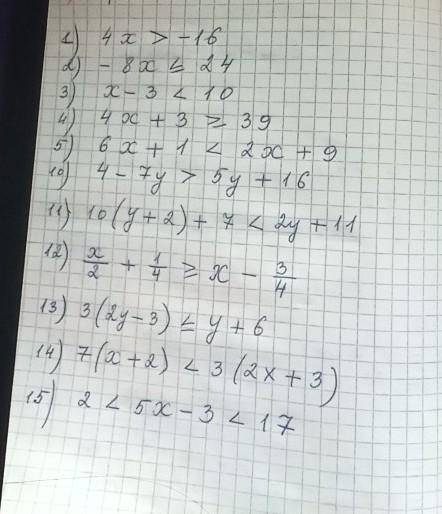 1) 4x > -16
2) - 8x ≤ 24
3) x - 3 < 10
4) 4x + 3 ≥ 39
5) 6x + 1 < 2x + 9
10) 4 - 7y > 5y + 16
11) 10(y + 2) + 7 < 2y + 11
12) x/2 + 1/4 ≥ x - 3/4
13) 3(2y - 3) ≤ y + 6
14) 7(x + 2) < 3(2x + 3)
15) 2 < 5x - 3 < 17